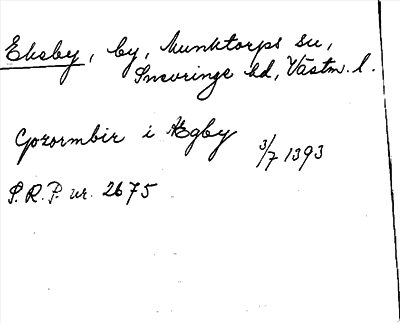 Eksby, by, Munktorps sn,
Snevringe hd, Västm. l.
Gozormbir i Ægby 3/7 1393
S.R.P. nr. 2675